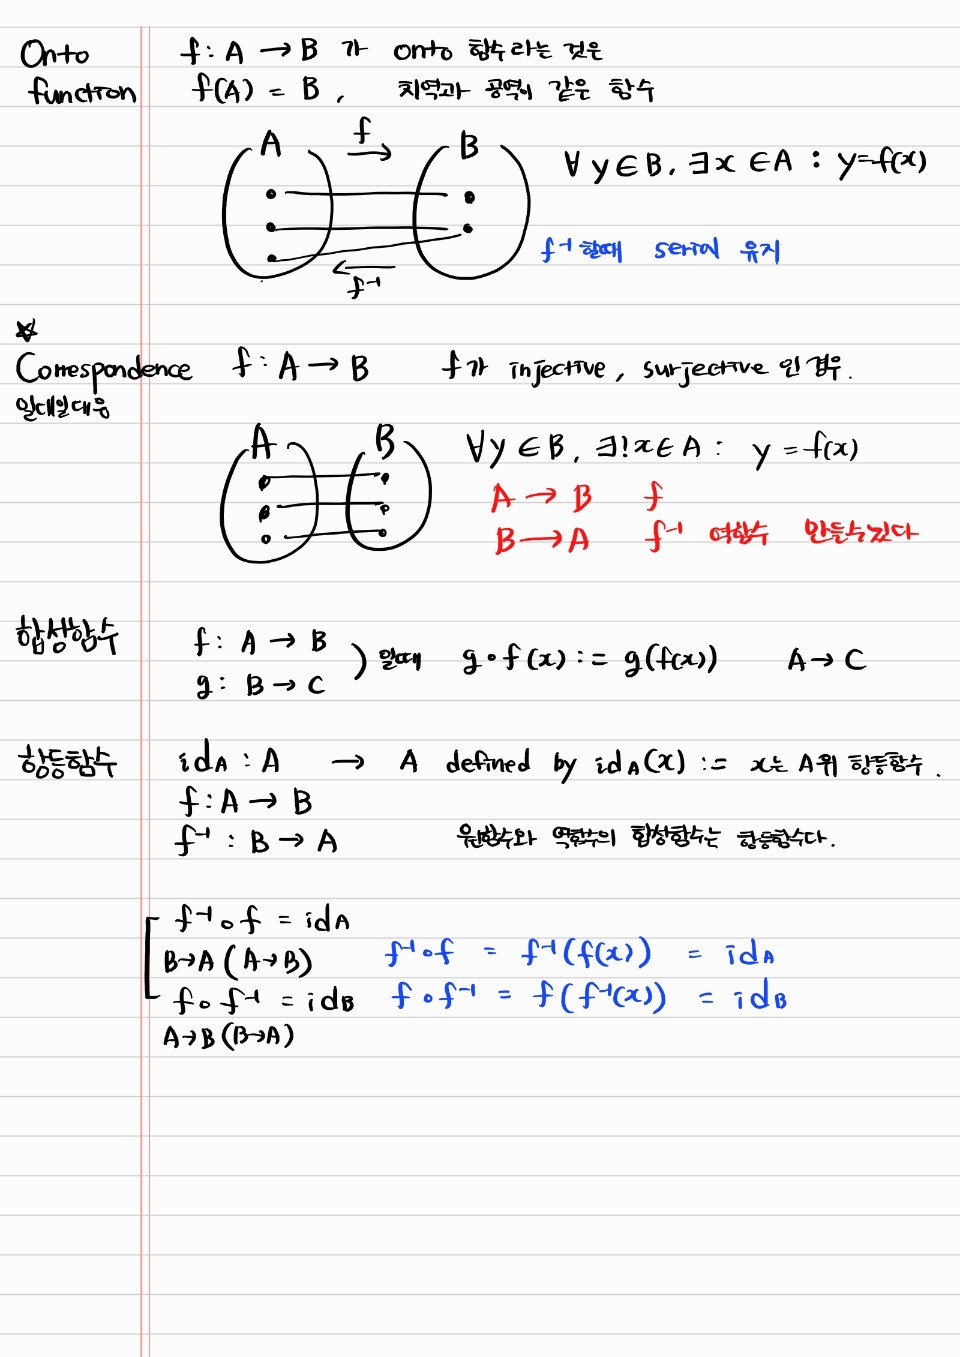 Onto function
f : A → B 가 onto 함수 라는 것은
f(A) = B , 치역과 공역이 같은 함수
A f B
∀ y ∈ B, ∃x ∈ A : y=f(x)
f⁻¹ 할때 serial 유지
f⁻¹
☆
Correspondence f : A → B f가 injective, surjective 인 경우.
일대일대응
A B ∀y ∈ B, ∃!x ∈ A : y = f(x)
A → B f
B → A f⁻¹ 여함수 만들수있다
합성함수
f : A → B
g : B → C
) 일때 g∘f(x) := g(f(x)) A → C
항등함수 id_A : A → A defined by id_A(x) := x는 A위 항등함수.
f : A → B
f⁻¹ : B → A 원함수와 역함수의 합성함수는 항등함수다.
f⁻¹∘f = id_A
B→A (A→B) f⁻¹∘f = f⁻¹(f(x)) = id_A
f∘f⁻¹ = id_B f∘f⁻¹ = f(f⁻¹(x)) = id_B
A→B (B→A)